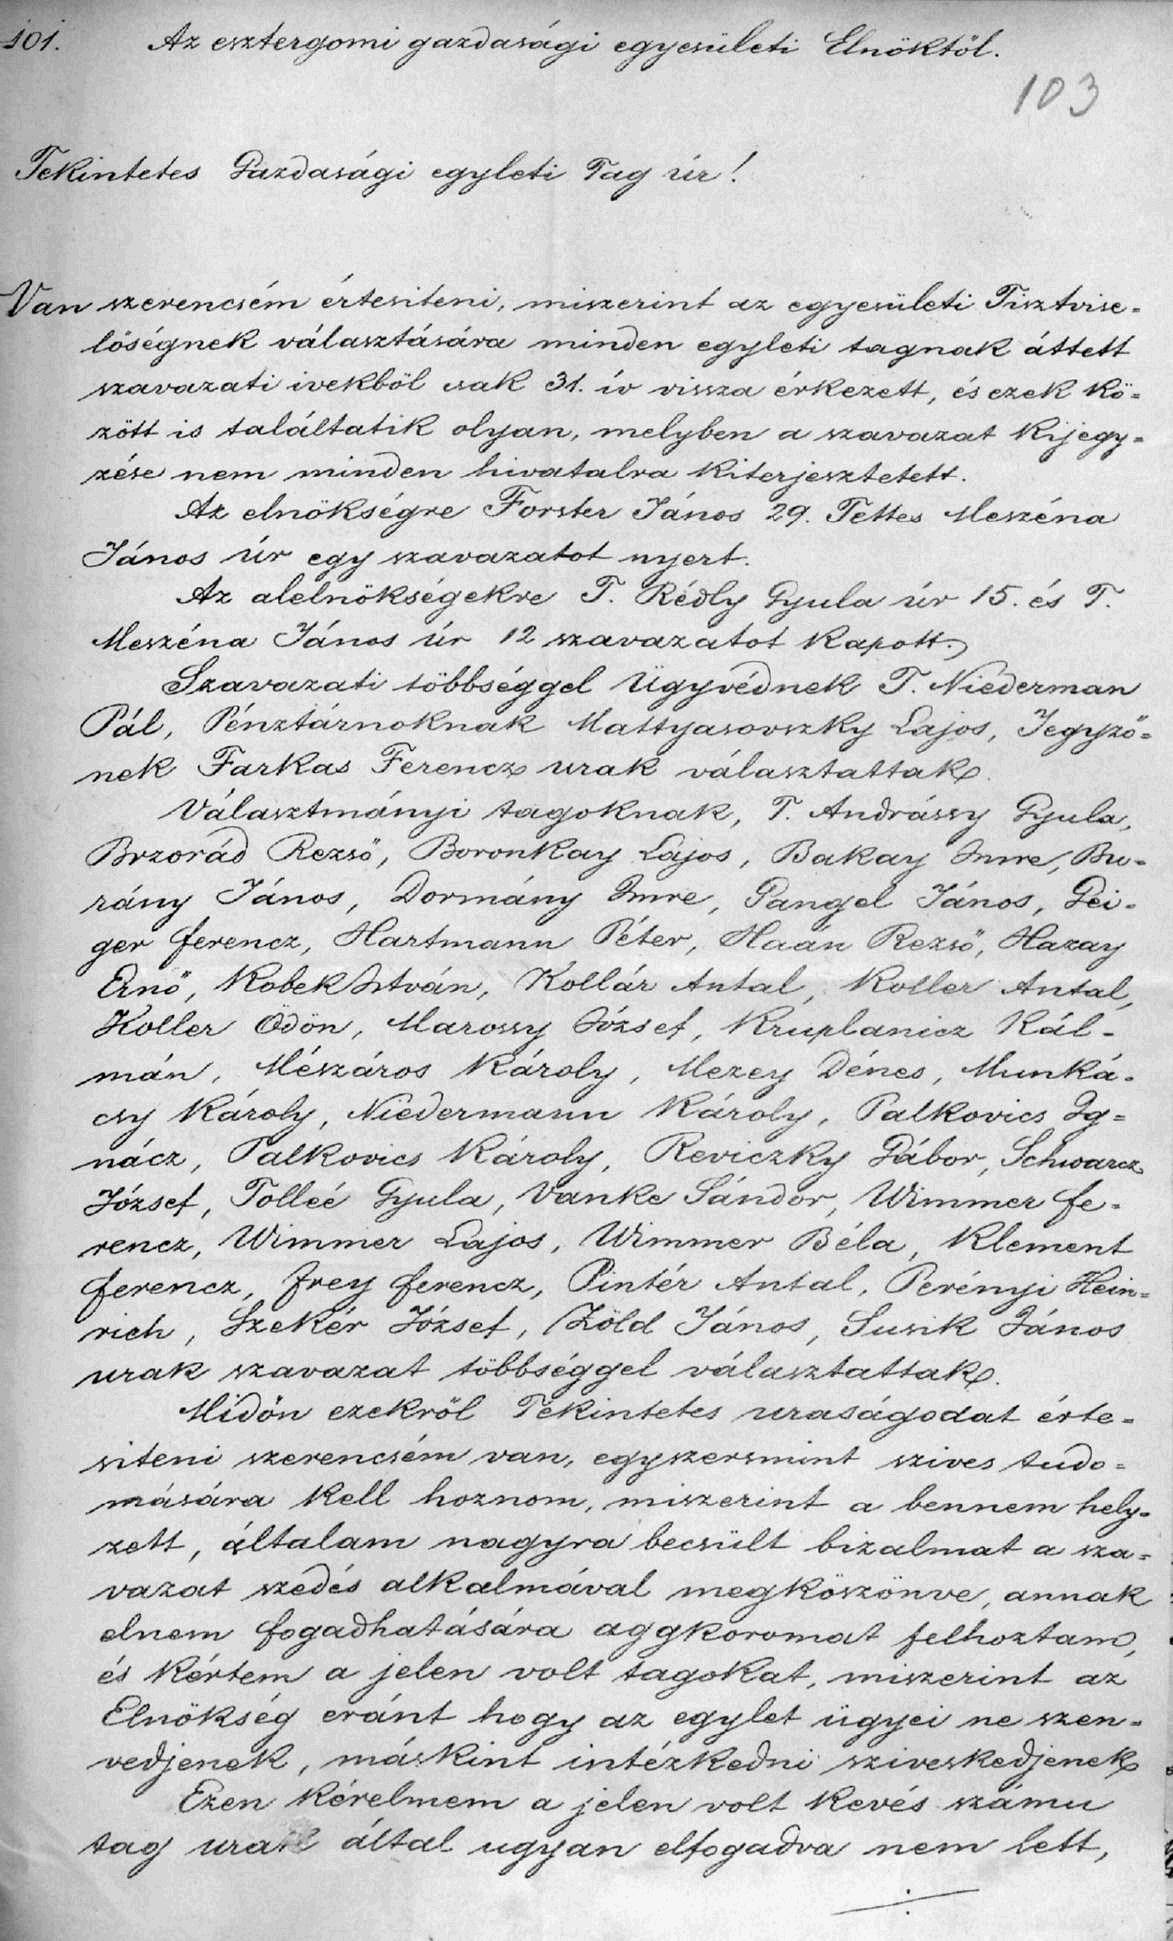 101. Az esztergomi gazdasági egyesületi Elnöktöl.
103
Tekintetes Gazdasági egyleti Tag úr!
Van szerencsém értesiteni, miszerint az egyesületi Tisztvise=
löségnek választására minden egyleti tagnak áttett
szavazati ivekböl csak 31. ív vissza érkezett, és ezek kö=
zött is találtatik olyan, melyben a szavazat kijegy=
zése nem minden hivatalra kiterjesztetett.
Az elnökségre Forster János 29. Tettes Meszéna
János úr egy szavazatot nyert.
Az alelnökségekre T. Rédly Gyula úr 15. és T.
Meszéna János úr 12 szavazatot kapott.
Szavazati többséggel Ügyvédnek T. Niederman
Pál, Pénztárnoknak Mattyasovszky Lajos, Jegyzö=
nek Farkas Ferencz urak választattak.
Választmányi tagoknak, T. Andrássy Gyula,
Brzorád Rezsö, Boronkay Lajos, Bakay Imre, Bu=
rány János, Dormány Imre, Gangel János, Gei=
ger Ferencz, Hartmann Péter, Haán Rezsö, Hazay
Ernö, Kobek István, Kollár Antal, Koller Antal,
Koller Ödön, Marossy József, Kruplanicz Kál=
mán, Mészáros Károly, Mezey Dénes, Munká=
csy Károly, Niedermann Károly, Palkovics Ig=
nácz, Palkovics Károly, Reviczky Gábor, Schwarcz
József, Tolleé Gyula, Vanke Sándor, Wimmer Fe=
rencz, Wimmer Lajos, Wimmer Béla, Klement
Ferencz, Frey Ferencz, Pintér Antal, Perényi Hein=
rich, Szekér József, Zöld János, Susik János
urak szavazat többséggel választattak.
Midön ezekröl Tekintetes uraságodat érte=
siteni szerencsém van, egyszersmint szives tudo=
mására kell hoznom, miszerint a bennem hely=
zett, általam nagyra becsült bizalmat a sza=
vazat szedés alkalmával megköszönve, annak
elnem fogadhatására aggkoromat felhoztam,
és kértem a jelen volt tagokat, miszerint az
Elnökség eránt hogy az egylet ügyei ne szen=
vedjenek, máskint intézkedni sziveskedjenek
Ezen kérelmem a jelen volt kevés számu
tag urak által ugyan elfogadva nem lett,